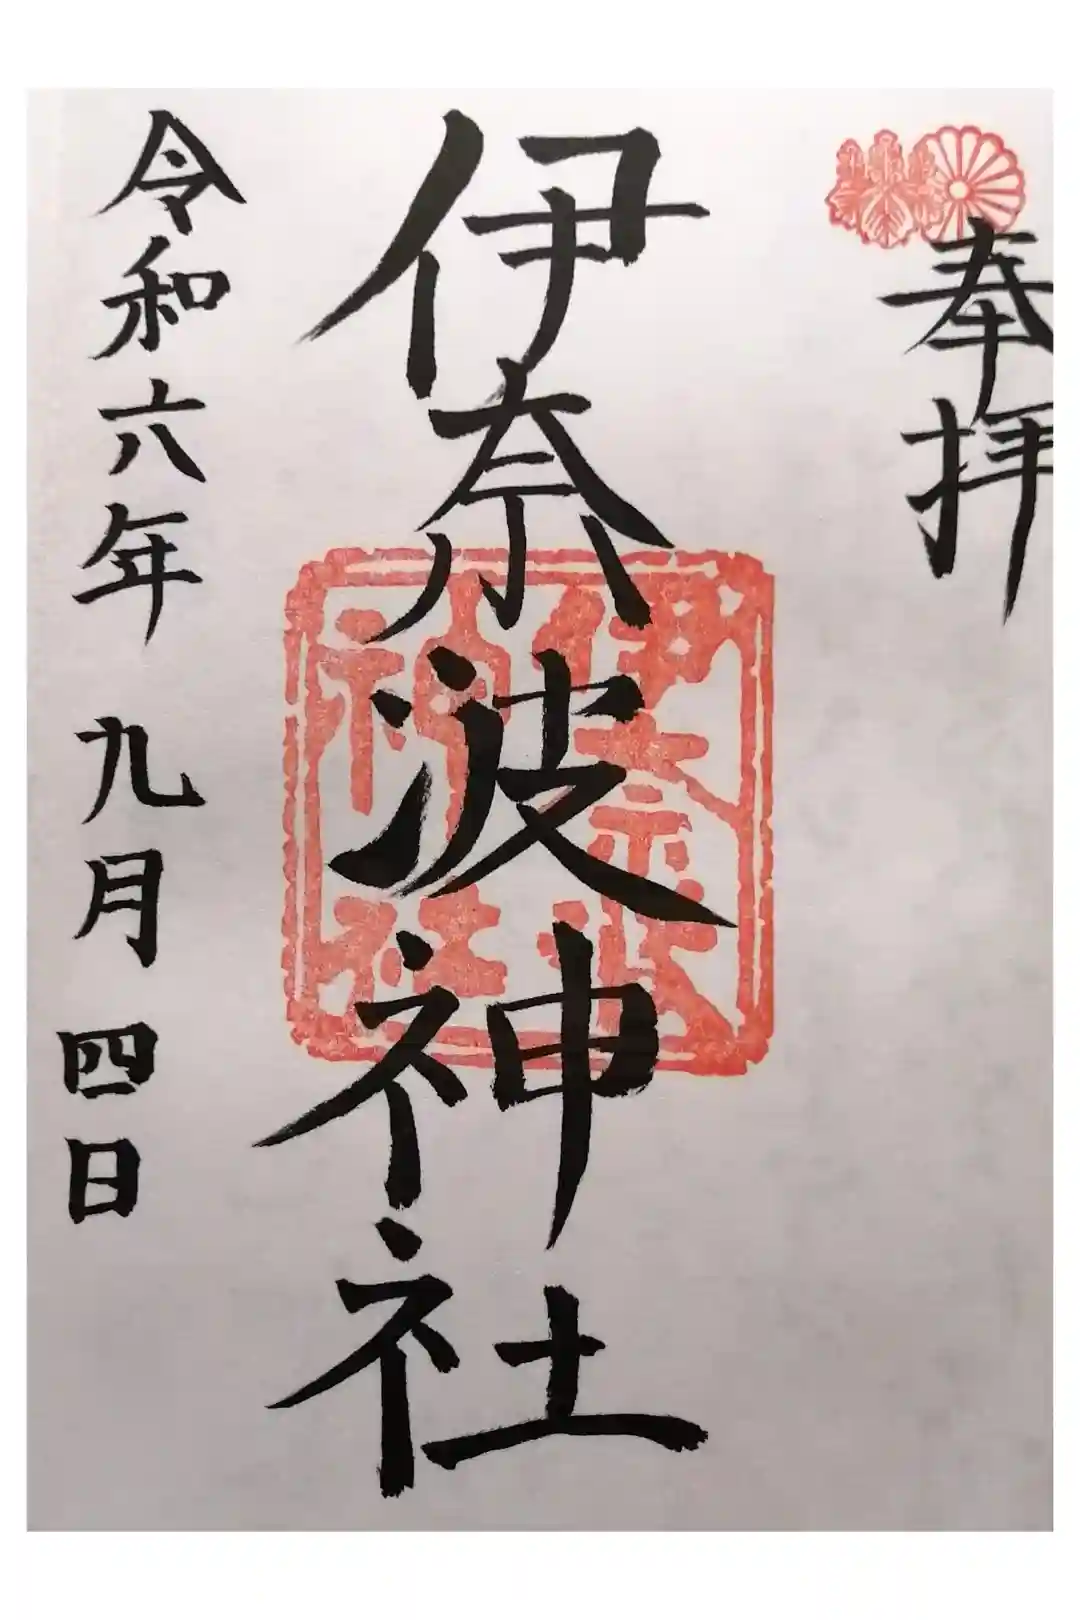 奉拝
伊奈波神社
伊奈波
神社
令和六年 九月 四日